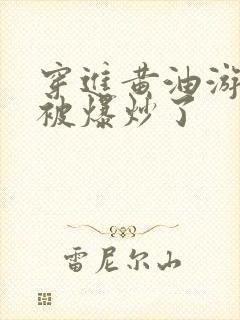 穿进黄油游
被爆炒了
雷尼尔山